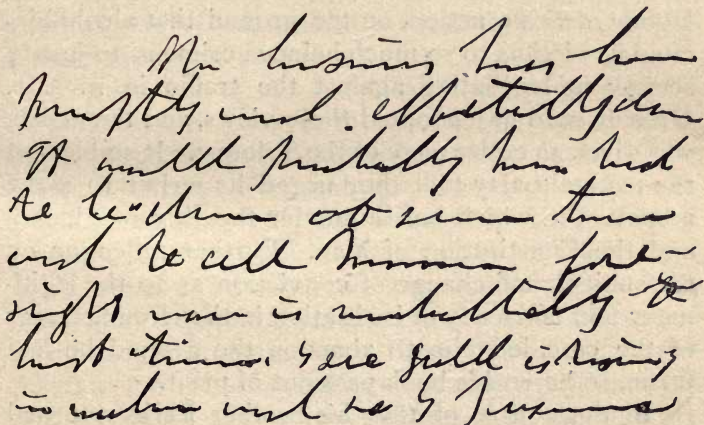 The business has been
promptly and effectually done
It would probably have had
to be done at some time
and to all human fore-
sight now is undoubtedly the
best time. gold is rising
in value and so I presume